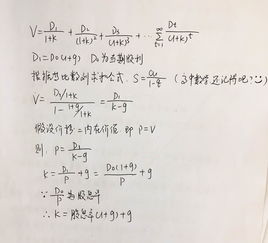 V = D₁/(1+k) + D₂/(1+k)² + D₃/(1+k)³ + … ∑ₜ₌₁^∞ Dt/(1+k)^t
D₁ = D₀(1+g) D₀为当期股利
根据等比数列求和公式. S = a₁/(1-q) (高中数学还记得吧?
V = (D₁/1+k)/(1 - (1+g)/(1+k)) = D₁/(k-g)
假设价格 = 内在价值 即 P=V
则. P = D₁/(k-g)
K = D₁/P + g = D₀(1+g)/P + g
∵ D₀/P 为股息率
∴ K = 股息率(1+g) + g